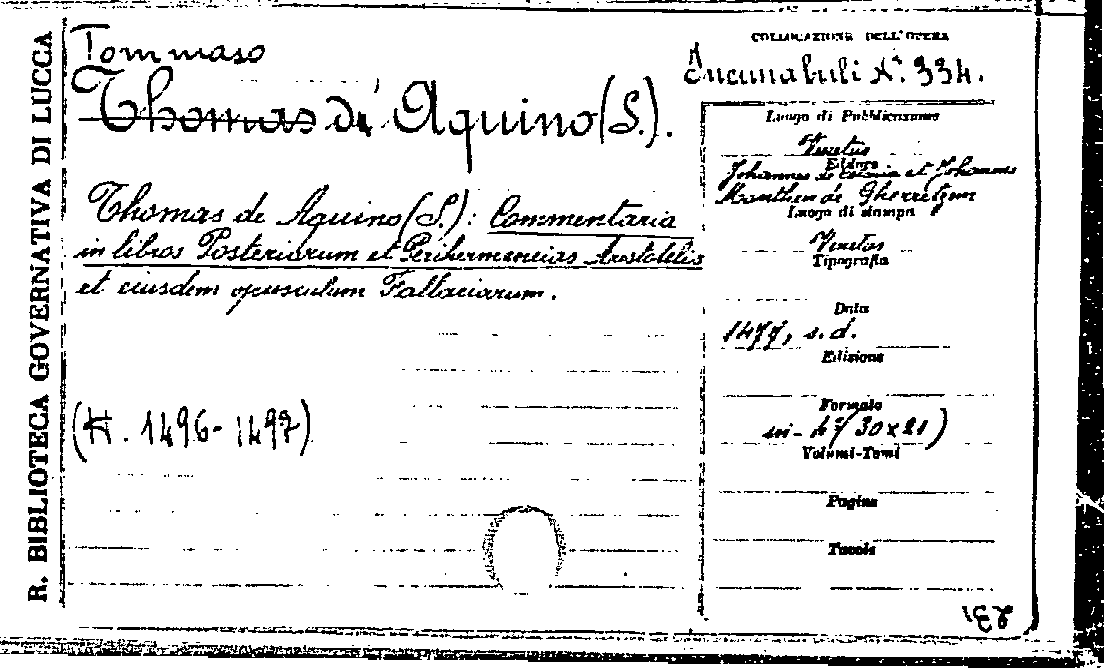 R. BIBLIOTECA GOVERNATIVA DI LUCCA
Tommaso
Thomas di Aquino (S.).
Thomas de Aquino (S.): Commentaria
in libros Posteriorum et Perihermeneias Aristotelis
et eiusdem opusculum Fallaciarum.
(H. 1496-1497)
COLLOCAZIONE DELL'OPERA
Incunabuli N.° 334.
Luogo di Pubblicazione
Venetus
Editore
Johannes de Colonia et Johannes
Manthen de Gherretzem
Luogo di stampa
Venetus
Tipografia
Data
1477, s. d.
Edizione
Formato
in-4° (30x21)
Volumi-Tomi
Pagine
Tavole